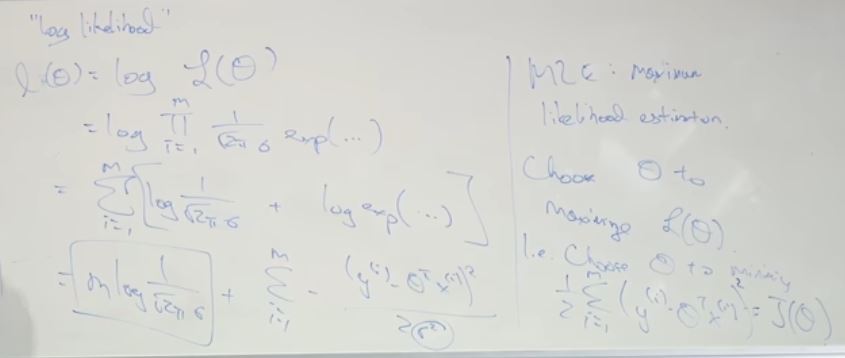 "log likelihood"
ℓ(θ) = log L(θ)
= log ∏_{i=1}^{m} 1/(√2π σ) exp(...)
= ∑_{i=1}^{m} [ log 1/(√2π σ) + log exp(...) ]
= m log 1/(√2π σ) + ∑_{i=1}^{m} - (y^{(i)} - θ^T x^{(i)})^2 / 2σ^2
MLE : maximum
likelihood estimation.
Choose θ to
maximize L(θ).
i.e. Choose θ to minimize
1/2 ∑_{i=1}^{m} (y^{(i)} - θ^T x^{(i)})^2 = J(θ)